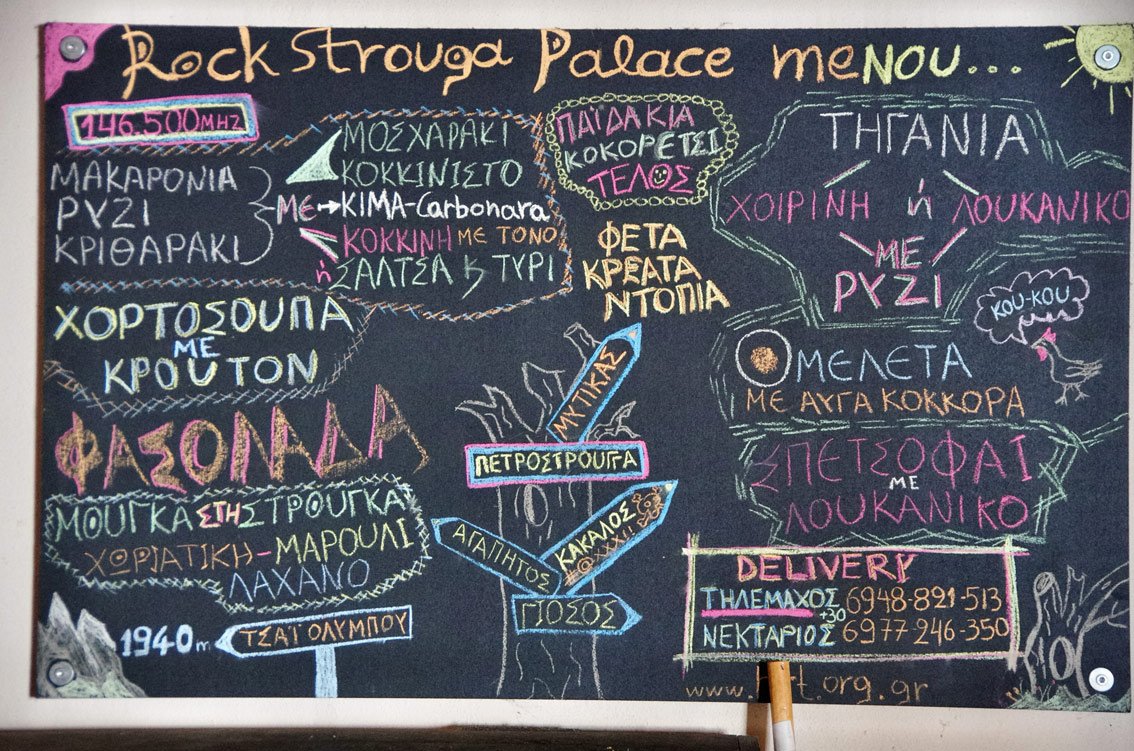 Rock Strouga Palace meNOU...
146.500MHZ
ΜΑΚΑΡΟΝΙΑ
ΡΥΖΙ
ΚΡΙΘΑΡΑΚΙ
ΜΕ
ΜΟΣΧΑΡΑΚΙ
ΚΟΚΚΙΝΙΣΤΟ
→ΚΙΜΑ-Carbonara
ΚΟΚΚΙΝΗ ΜΕ ΤΟΝΟ
ή ΣΑΛΤΣΑ ϗ ΤΥΡΙ
ΠΑΪΔΑΚΙΑ
ΚΟΚΟΡΕΤΣΙ
ΤΕΛΟΣ
ΦΕΤΑ
ΚΡΕΑΤΑ
ΝΤΟΠΙΑ
ΤΗΓΑΝΙΑ
ΧΟΙΡΙΝΗ ή ΛΟΥΚΑΝΙΚΟ
ΜΕ
ΡΥΖΙ
ΧΟΡΤΟΣΟΥΠΑ
ΜΕ
ΚΡΟΥΤΟΝ
ΦΑΣΟΛΑΔΑ
ΜΟΥΓΚΑ ΣΤΗ ΣΤΡΟΥΓΚΑ
ΧΩΡΙΑΤΙΚΗ-ΜΑΡΟΥΛΙ
ΛΑΧΑΝΟ
1940m ΤΣΑΤ ΟΛΥΜΠΟΥ
ΜΥΤΙΚΑΣ
ΠΕΤΡΟΣΤΡΟΥΓΓΑ
ΑΓΑΠΗΤΟΣ
ΚΑΚΑΛΟΣ
ΓΙΟΣΟΣ
ΚΟΥ-ΚΟΥ
ΟΜΕΛΕΤΑ
ΜΕ ΑΥΓΑ ΚΟΚΚΟΡΑ
ΣΠΕΤΣΟΦΑΪ
ΜΕ
ΛΟΥΚΑΝΙΚΟ
DELIVERY
ΤΗΛΕΜΑΧΟΣ 6948-891-513
+30
ΝΕΚΤΑΡΙΟΣ 6977-246-350